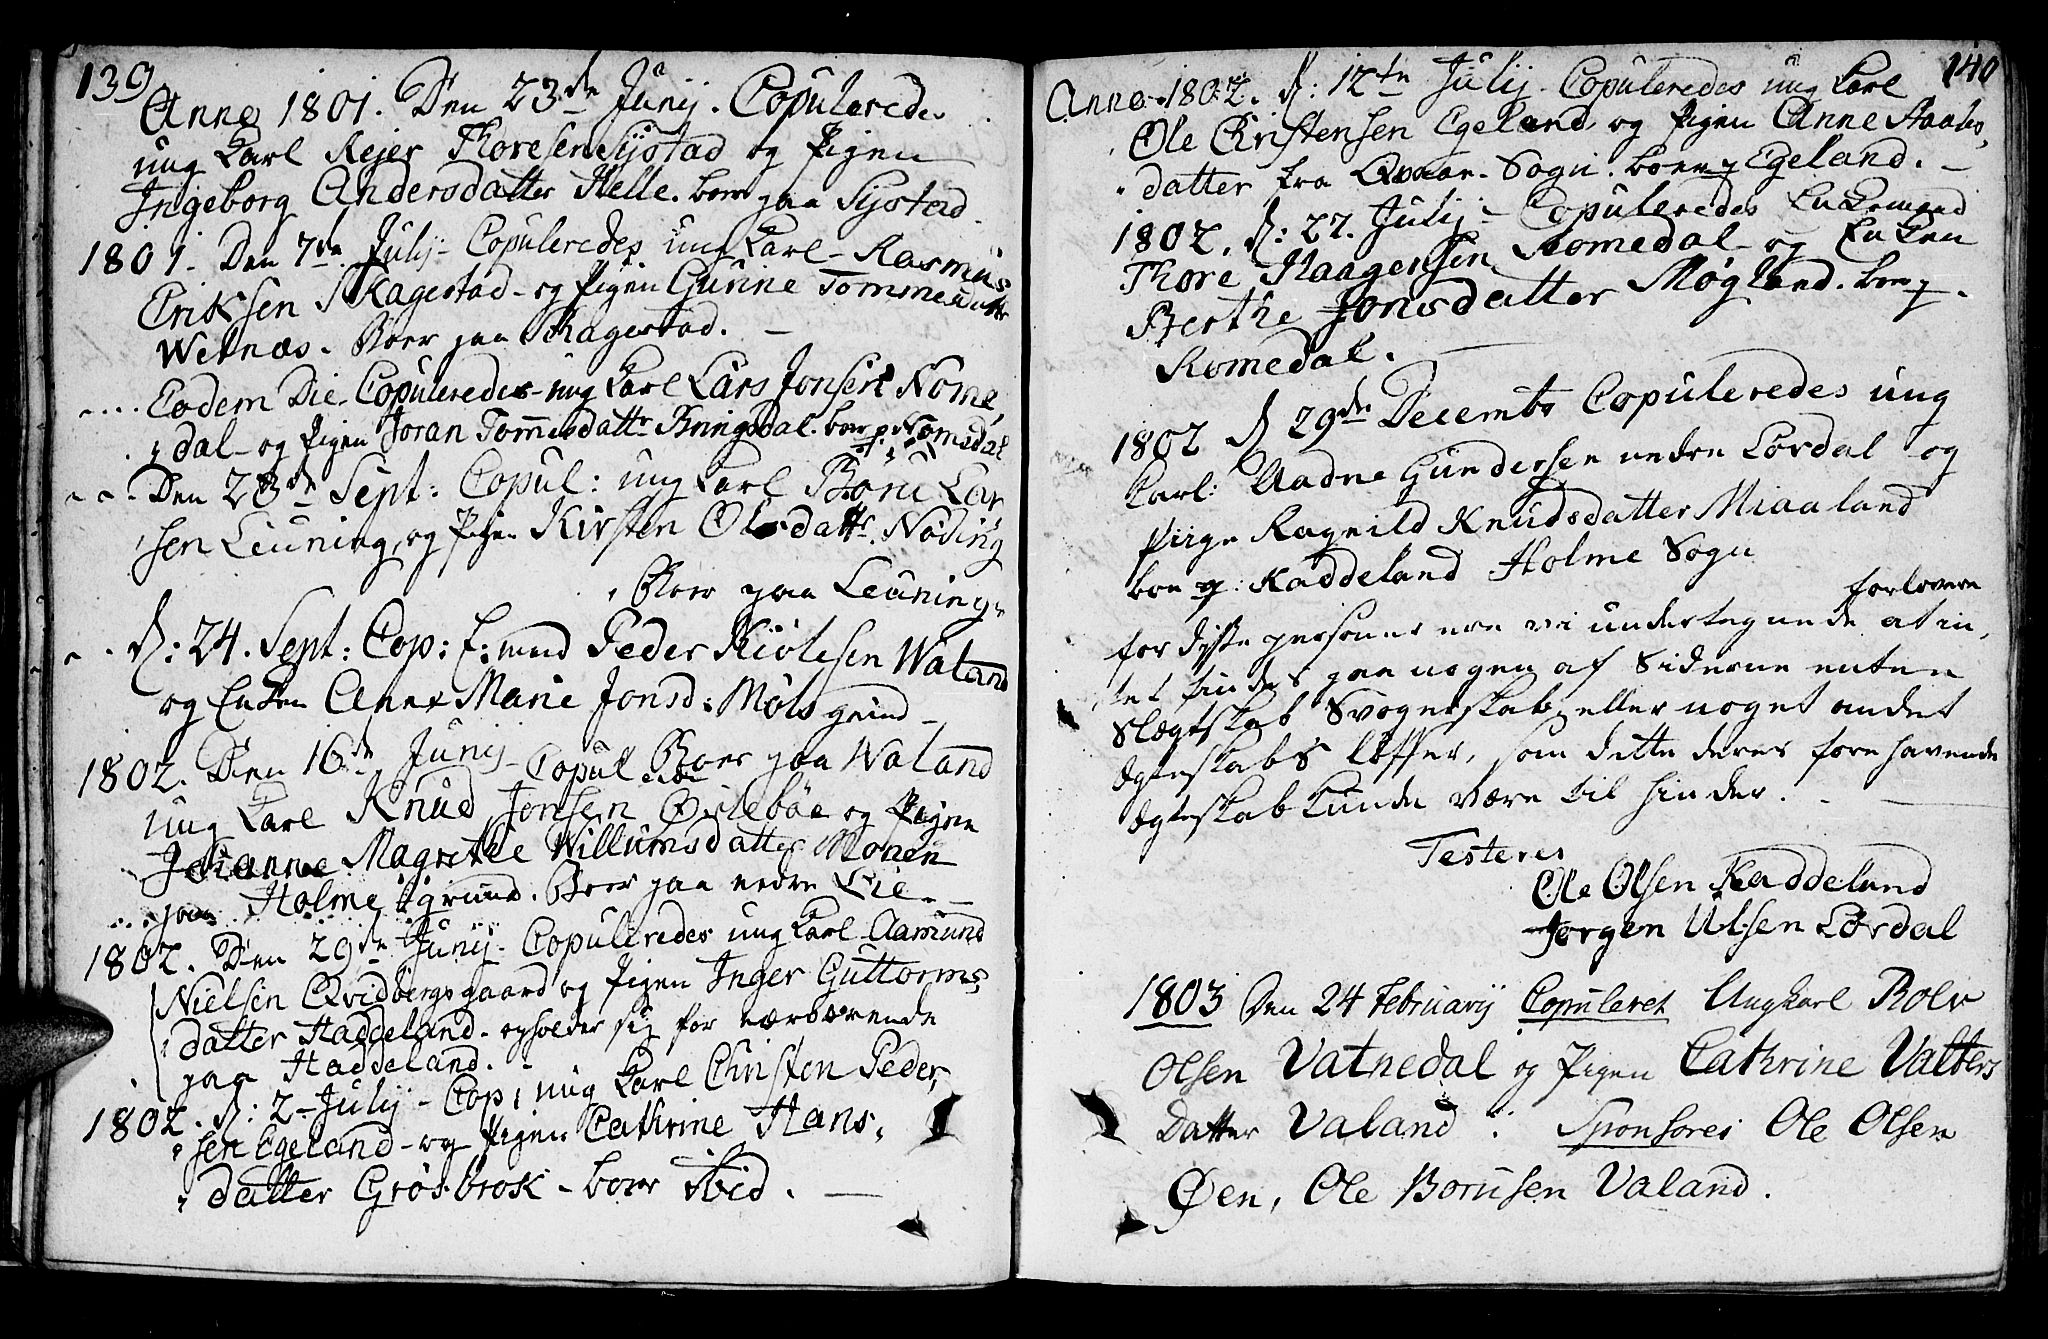 139
Anno 1801. Den 23de Junij. Copuleredes
ung Karl Rejer Thoresen Sijstad og Pigen
Ingeborg Andersdatter Helle. boer paa Sijstad.
1801. Den 7de Julij - Copuleredes ung Karl - Rasmus
Eriksen Skagestad - og Pigen Gurine Tommesdattr
Wetnæs. Boer paa Skagestad. -
Eodem Die Copuleredes - ung Karl Lars Jonsen Nome,
„dal - og Pigen Joran Tommesdattr Kringsdal. boer p. Nomedal
Den 23de Sept: Copul: ung Karl Börü Lar
„sen Leuning, og Pigen Kirsten Olsdattr. Nöding
„ Boer paa Leuning„
d: 24. Sept: Cop: E:mand Peder Kiölesen Waland
og Enken Anne Marie Jonsd: Möls grind -
1802. Den 16de Junij - Copul Boer paa Waland
ung Karl Knud Jonsen Øileböe og Pigen
Johanne Magrethe Willumsdatter Monen
paa Holme grund. Boer paa nedre Lie. -
1802. Den 29de Junij - Copuleredes ung Karl - Aamund
Nielsen Qvidbergsgaard og Pigen Inger Guttorms„
„datter Haddeland - opholder sig for nærværende
paa Haddeland. -
1802. d: 2 - Julij - Cop: ung Karl Christen Peder,
„sen Egeland - og Pigen Cathrine Hans„
„datter Grösbrok - boer ibid. -
140
Anno 1802. d: 12te Julij - Copuleredes ung Karl
Ole Christensen Egeland, og Pigen Anne Staale,
„datter fra Qvaas - Sogn. boer p Egeland. -
1802. d: 27. Julij - Copuleredes Enkemand
Thore Haagensen Romedal - og Enken
Berthe Jonsdatter Møgland. boer p.
Romedal.
1802 d 29de Decembr Copuleredes ung
Karl: Aadne Gundersen nedre Lordal og
Pige Ragnild Knudsdatter Miaaland
boe p: Kaddeland Holme Sogn
forlovere
for disse personer ere vi undertegnede at in,
tet findes paa nogen af Siderne enten
Slegtskab Svogerskab, eller noget andet
Ægteskabs Löfter, som dette deres forehavende
Ægteskab kunde være til hinder.
Testerer
Ole Olsen Kaddeland
Jørgen Ulsen Lordal
1803 Den 24 Februarij Copuleret Ungkarl Rolv
Olsen Vatnedal og Pigen Cathrine Valters
Datter Valand. Sponsores Ole Olsen
Øen, Ole Borusen Valand.